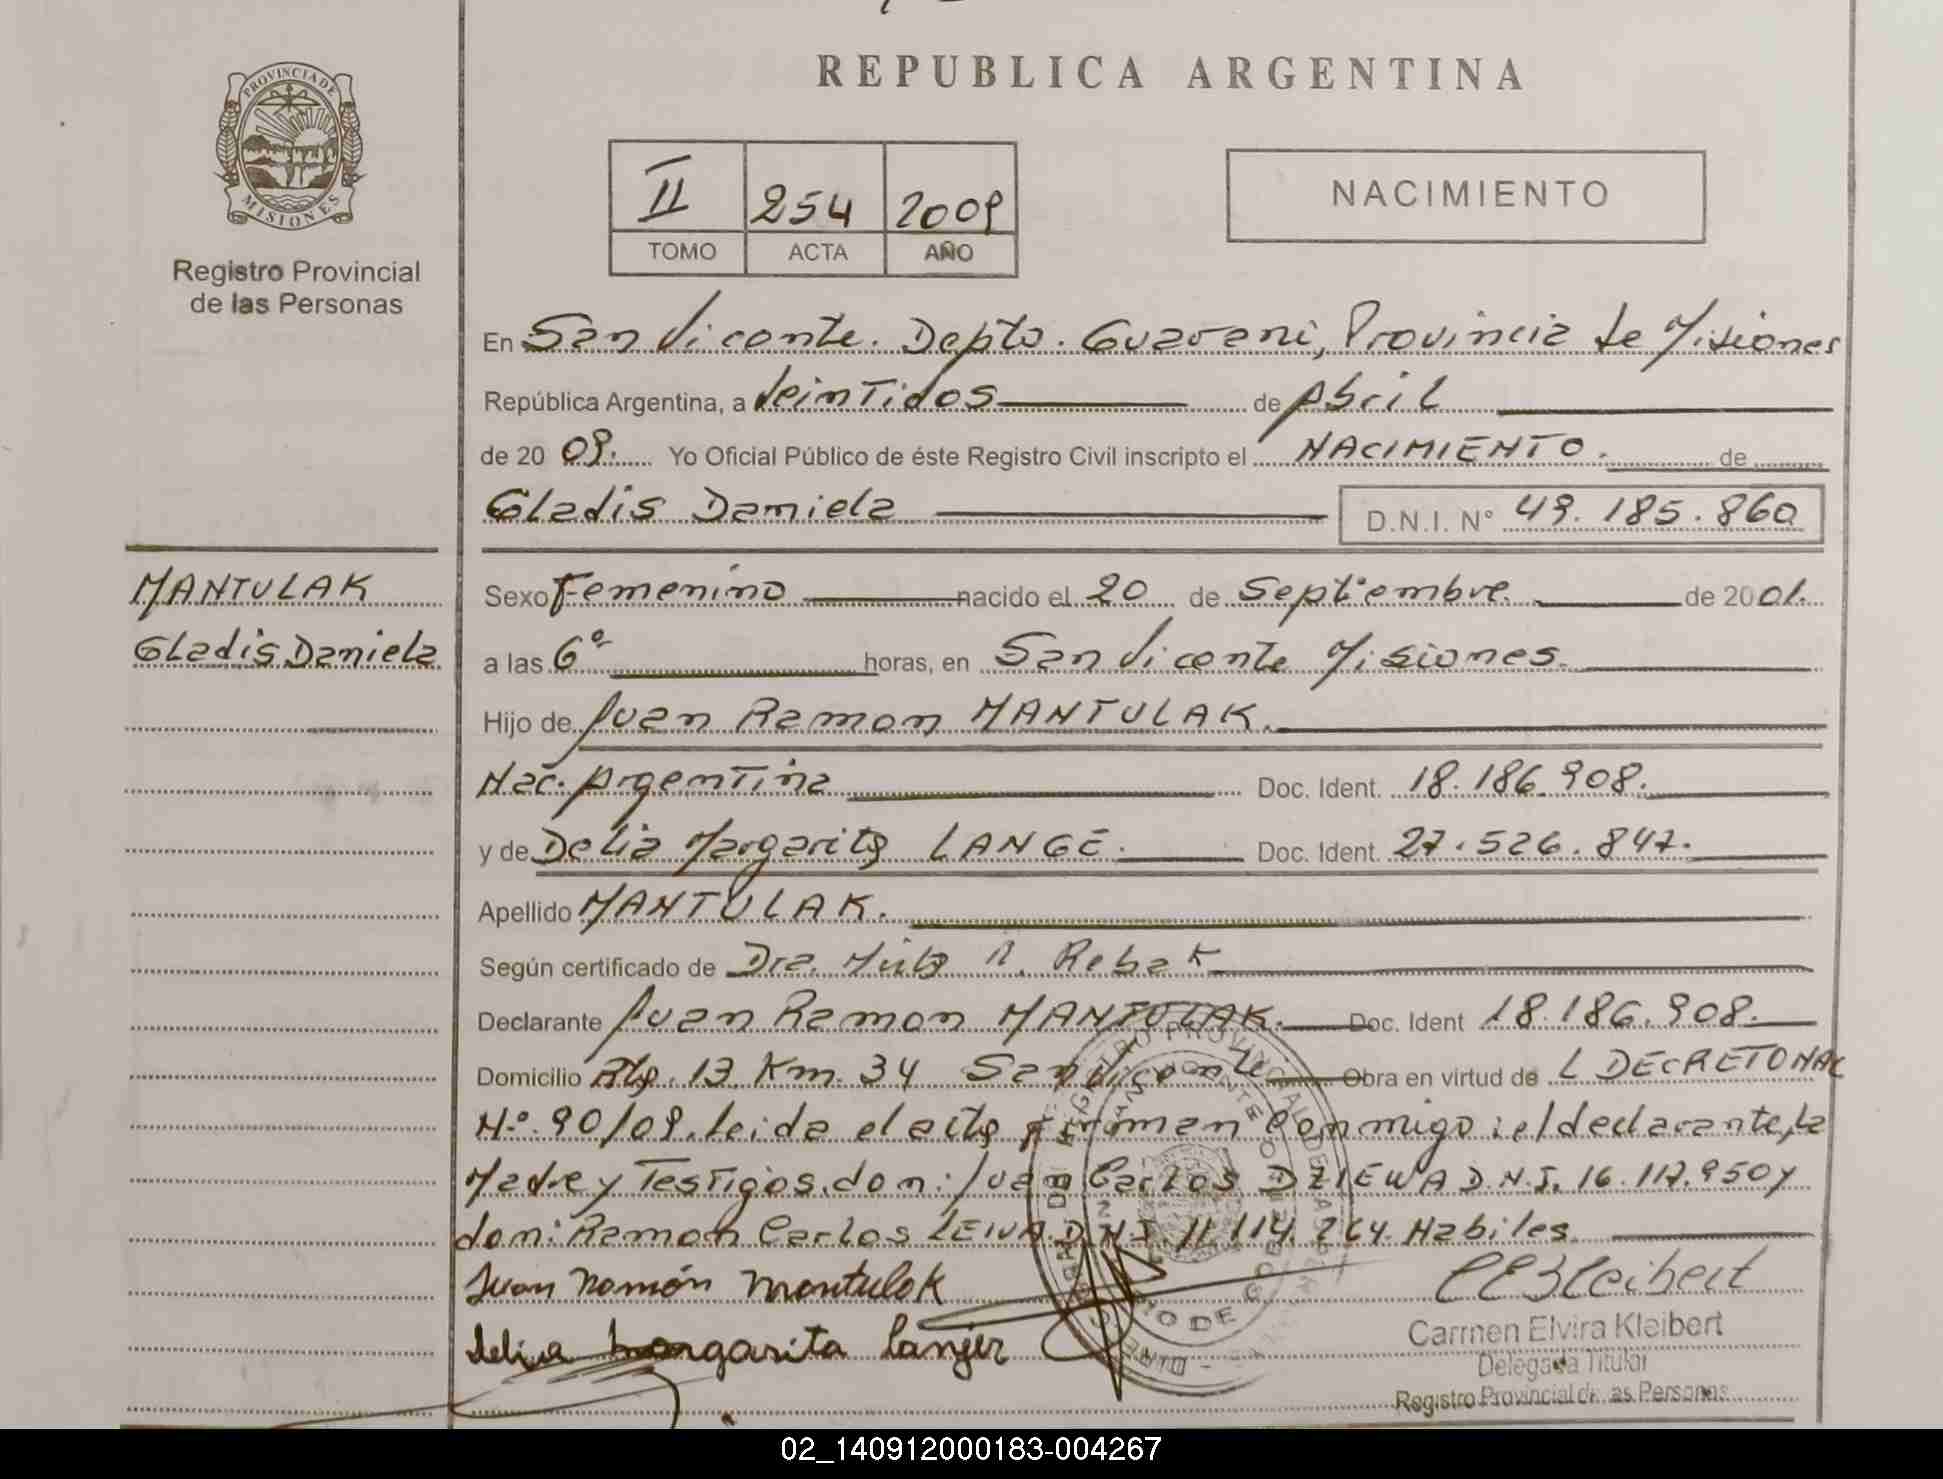 REPUBLICA ARGENTINA
PROVINCIA DE
MISIONES
Registro Provincial
de las Personas
II 254 2009
TOMO ACTA AÑO
NACIMIENTO
En San Vicente. Depto. Guarani, Provincia de Misiones
República Argentina, a Veintidos de Abril
de 20 09. Yo Oficial Público de éste Registro Civil inscripto el NACIMIENTO. de
Gladis Daniela D.N.I. N° 49.185.860
MANTULAK
Gladis Daniela
Sexo Femenino nacido el 20 de Septiembre de 2001.
a las 6º horas, en San Vicente Misiones.
Hijo de Juan Ramon MANTULAK.
Nac. Argentina Doc. Ident. 18.186.908.
y de Delia Margarita LANGE. Doc. Ident. 27.526.847.
Apellido MANTULAK.
Según certificado de Dra. R. Rebak
Declarante Juan Ramon MANTULAK. Doc. Ident 18.186.908.
Domicilio Rta. 13 Km. 34 San Vicente Obra en virtud de L DECRETO NAC
Nº 90/09. leida el acta firman conmigo: el declarante, la
Madre y Testigos. don: Juan Carlos DZIEWA D.N.I. 16.117.950 y
don: Ramon Carlos LEIVA D.N.I. 11.114.264. Habiles.
Juan Ramón Mantulak
Delia Margarita
CEKleibert
Carmen Elvira Kleibert
Delegada Titular
Registro Provincial de las Personas
02_140912000183-004267